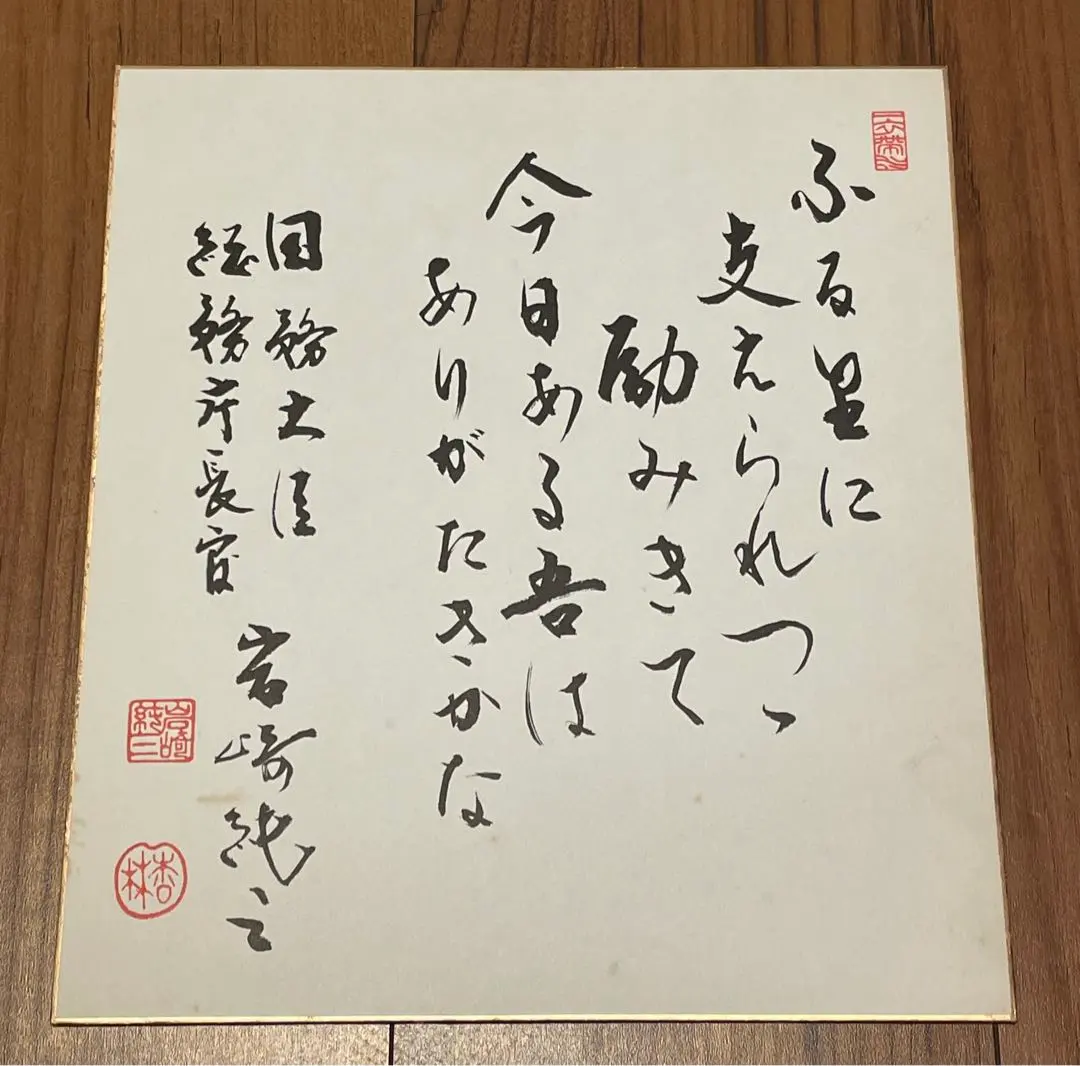 ふる里に
支えられつゝ
励みきて
今日ある吾は
ありがたきかな
国務大臣
総務庁長官
岩崎純三
岩崎
純三
杏林